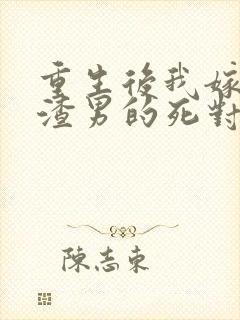 重生後我嫁
渣男的死對
陳志東